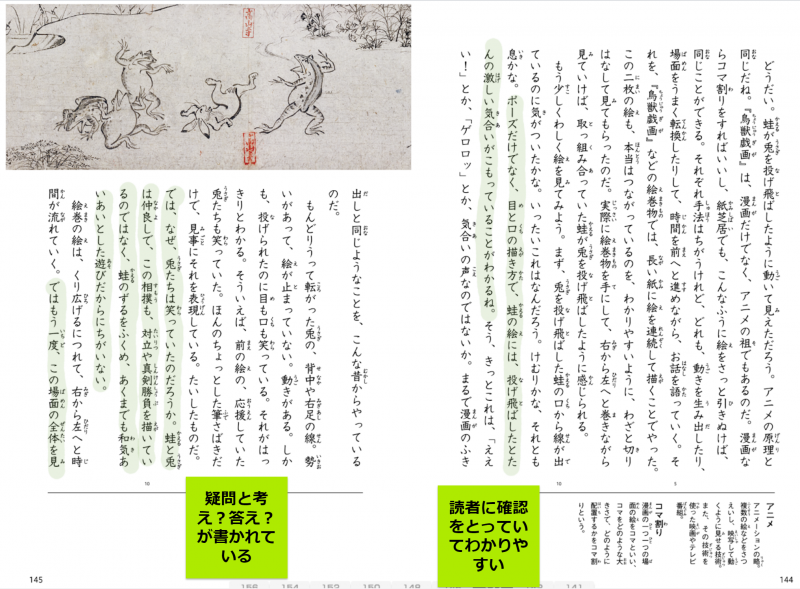 どうだい。蛙が兎を投げ飛ばしたように動いて見えただろう。アニメの原理と
同じだね。『鳥獣戯画』は、漫画だけでなく、アニメの祖でもあるのだ。漫画な
らコマ割りをすればいいし、紙芝居でも、こんなふうに絵をさっと引きぬけば、
同じことができる。それぞれ手法はちがうけれど、どれも、動きを生み出したり、
場面をうまく転換したりして、時間を前へと進めながら、お話を語っていく。そ
れを、『鳥獣戯画』などの絵巻物では、長い紙に絵を連続して描くことでやった。
この二枚の絵も、本当はつながっているのを、わかりやすいように、わざと切り
はなして見てもらったのだ。実際に絵巻物を手にして、右から左へと巻きながら
見ていけば、取っ組み合っていた蛙が兎を投げ飛ばしたように感じられる。
もう少しくわしく絵を見てみよう。まず、兎を投げ飛ばした蛙の口から線が出
ているのに気がついたかな。いったいこれはなんだろう。けむりかな、それとも
息かな。ポーズだけでなく、目と口の描き方で、蛙の絵には、投げ飛ばしたとた
んの激しい気合いがこもっていることがわかるね。そう、きっとこれは、「ええ
い！」とか、「ゲロロッ」とか、気合いの声なのではないか。まるで漫画のふき
5
10
アニメ
アニメーションの略。
複数の絵などをさつ
えいし、映写して動
くように見せる技術。
また、その技術を
使った映画やテレビ
番組。
コマ割り
漫画の一つ一つの場
面の絵をコマといい、
コマをどのような大
きさで、どのように
配置するかをコマ割
りという。
144
読者に確認
をとってい
てわかりや
すい
高山寺
出しと同じようなことを、こんな昔からやっている
のだ。
もんどりうって転がった兎の、背中や右足の線。勢
いがあって、絵が止まっていない。動きがある。しか
も、投げられたのに目も口も笑っている。それがはっ
きりとわかる。そういえば、前の絵の、応援していた
兎たちも笑っていた。ほんのちょっとした筆さばきだ
けで、見事にそれを表現している。たいしたものだ。
では、なぜ、兎たちは笑っていたのだろうか。蛙と兎
は仲良しで、この相撲も、対立や真剣勝負を描いてい
るのではなく、蛙のずるをふくめ、あくまでも和気あ
いあいとした遊びだからにちがいない。
絵巻の絵は、くり広げるにつれて、右から左へと時
間が流れていく。ではもう一度、この場面の全体を見
10
疑問と考
え？答え？
が書かれて
いる
145
156 154 152 150 148 141